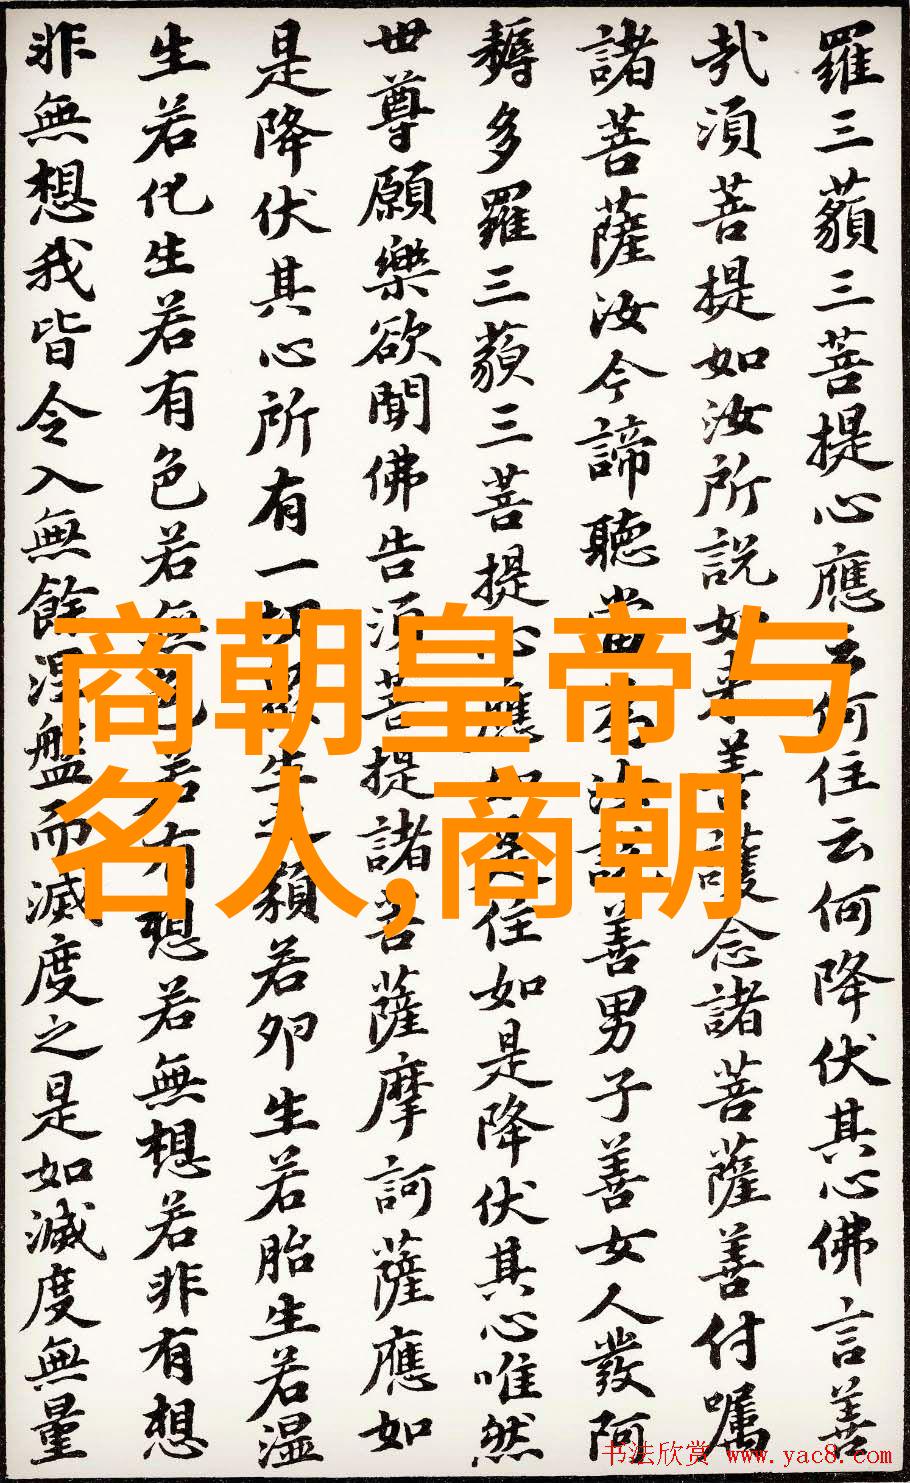 羅三藐三菩提心應云何住云何降伏其心佛言善
哉須菩提如汝所說如來善護念諸菩薩善付囑
諸菩薩汝今諦聽當為汝說善男子善女人發阿
耨多羅三藐三菩提心應如是住如是降伏其心唯然
世尊願樂欲聞佛告須菩提諸菩薩摩訶薩應如
是降伏其心所有一切眾生之類若卵生若胎生若濕
生若化生若有色若無色若有想若無想若非有想
非無想我皆令入無餘涅盤而滅度之是如滅度無量
商朝皇帝与
名人,商朝
书法欣赏 www.yac8.com